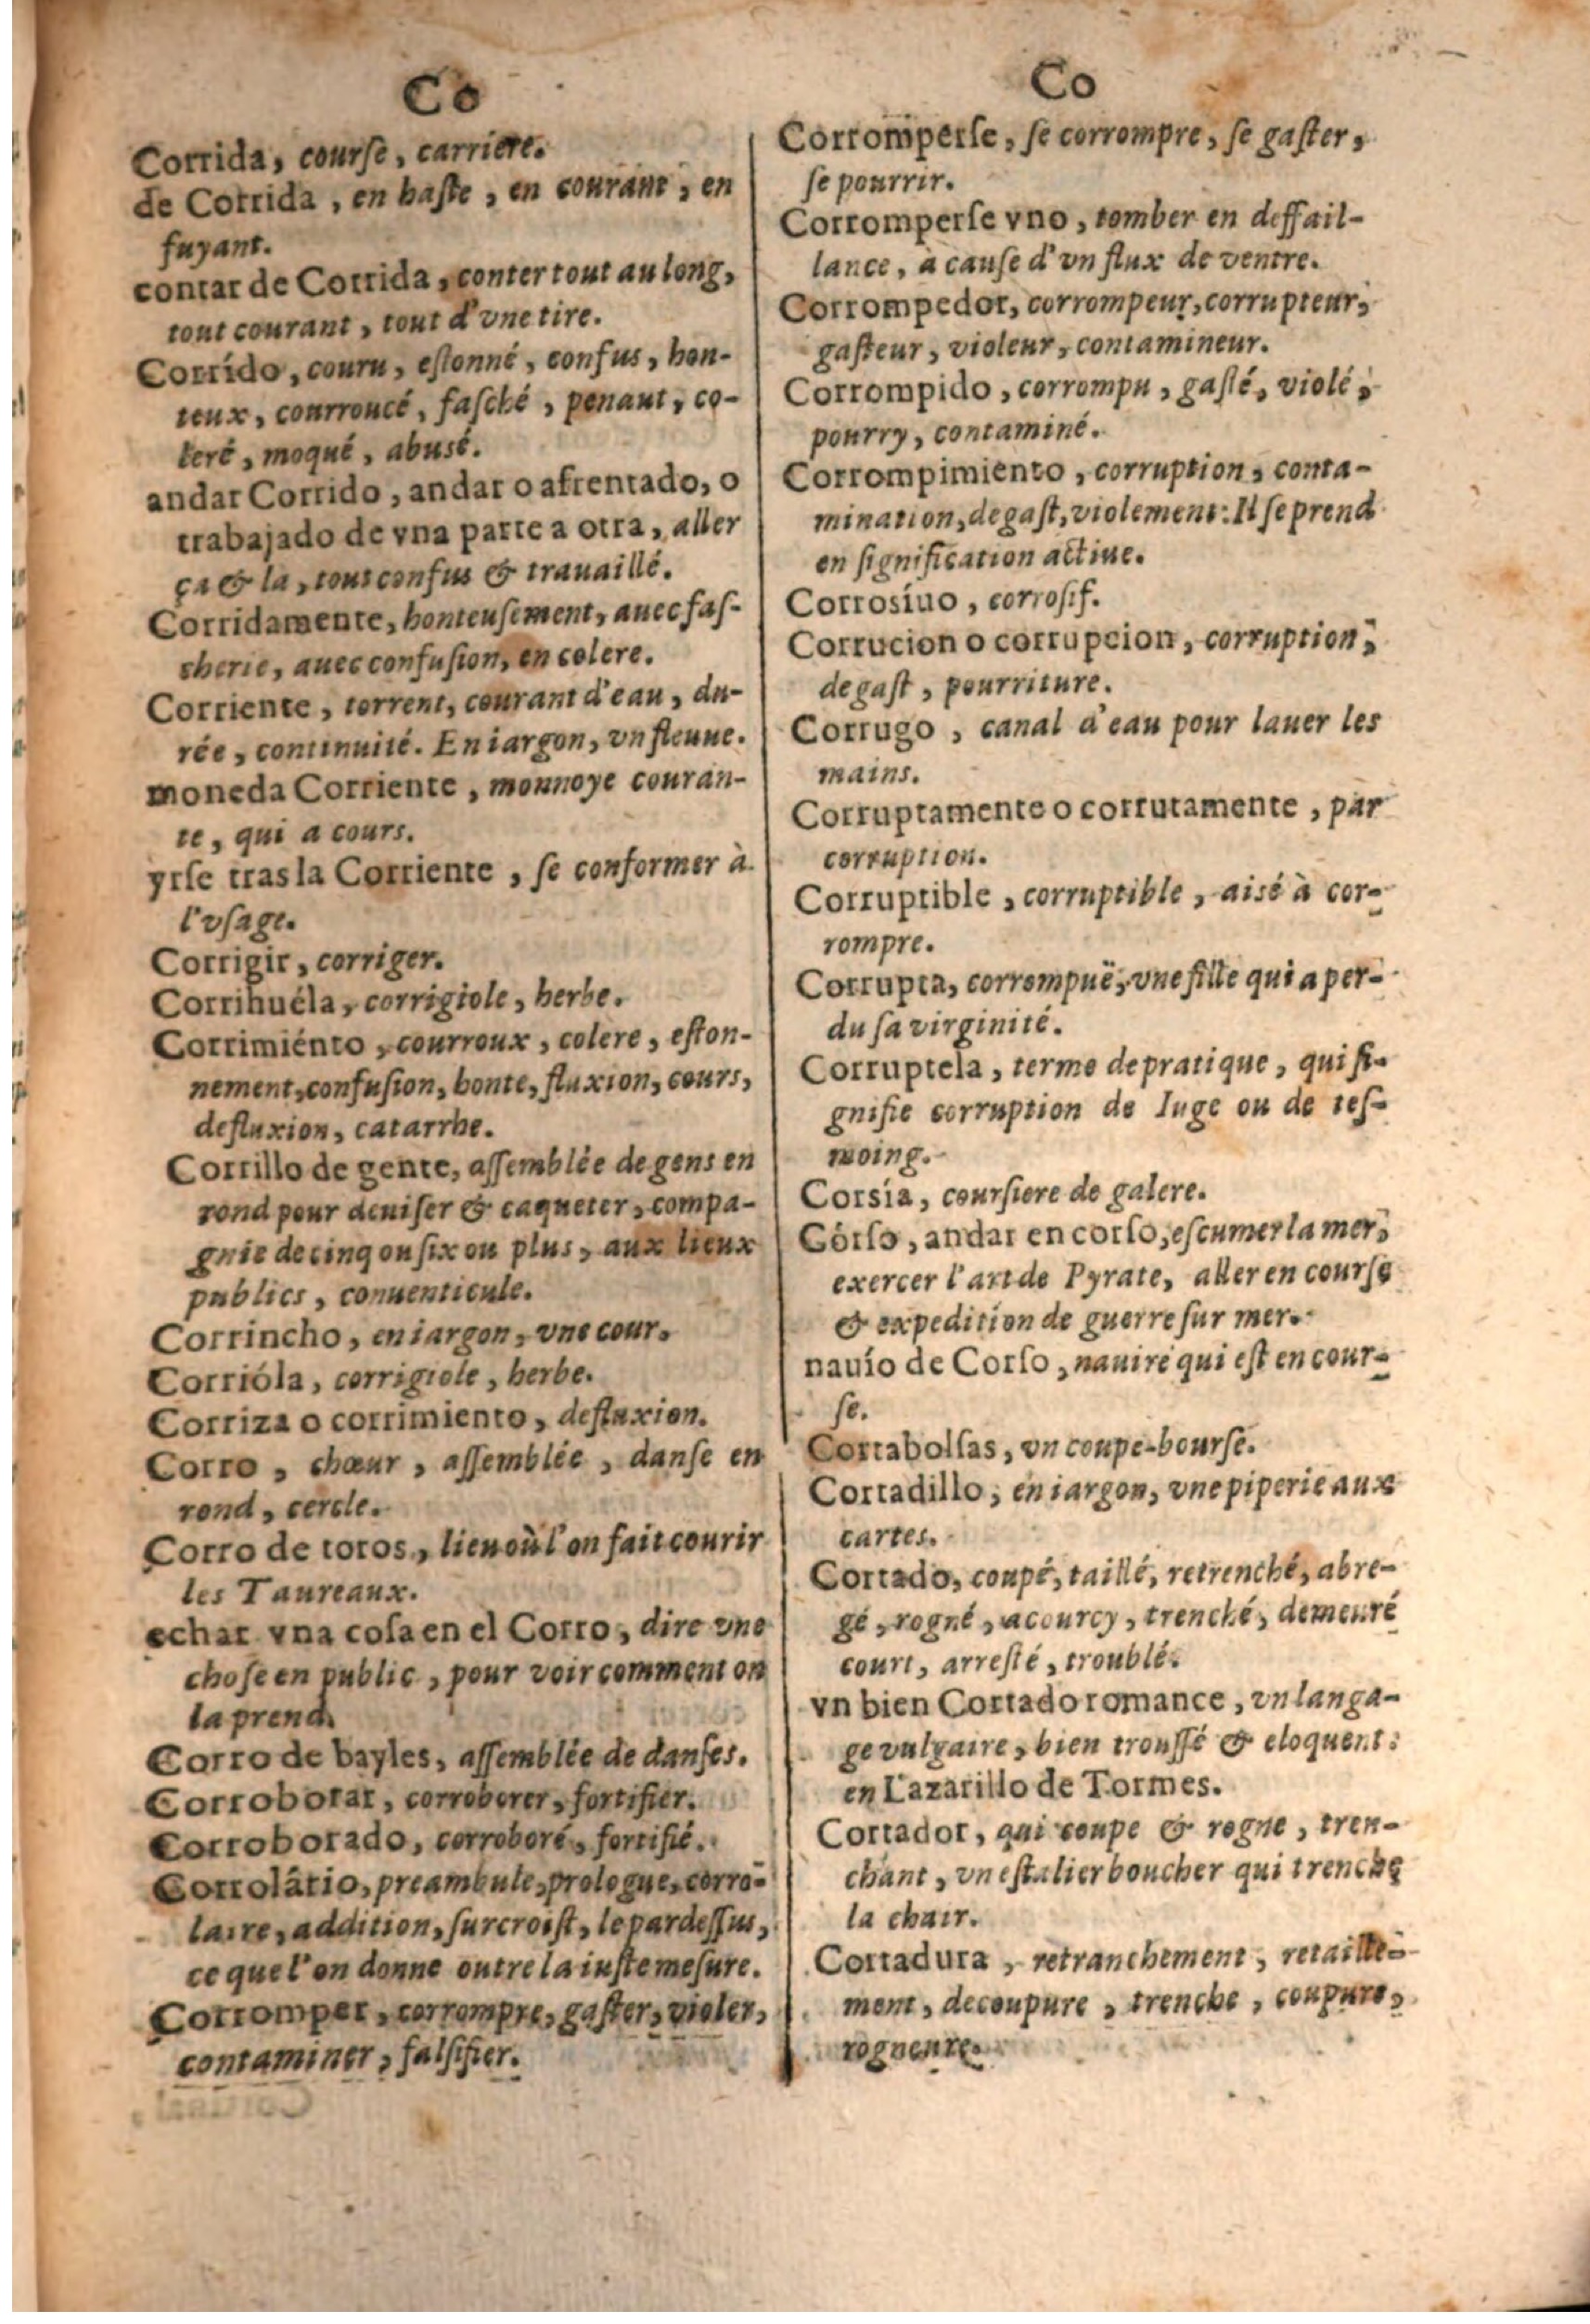 Co
Corrida, courſe, carriere.
de Corrida, en haſte, en courant, en
fuyant.
contar de Corrida, conter tout au long,
tout courant, tout d'vne tire.
Corrído, couru, eſtonné, confus, hon-
teux, courroucé, faſché, penaut, co-
leré, moqué, abusé.
andar Corrido, andar o afrentado, o
trabajado de vna parte a otra, aller
ça & la, tout confus & trauaillé.
Corridamente, honteuſement, auec faſ-
cherie, auec confuſion, en colere.
Corriente, torrent, courant d'eau, du-
rée, continuité. En iargon, vn fleuue.
moneda Corriente, monnoye couran-
te, qui a cours.
yrſe tras la Corriente, ſe conformer à
l'vſage.
Corrigir, corriger.
Corrihuéla, corrigiole, herbe.
Corrimiénto, courroux, colere, eſton-
nement, confuſion, honte, fluxion, cours,
defluxion, catarrhe.
Corrillo de gente, aſſemblée de gens en
rond pour deuiſer & caqueter, compa-
gnie de cinq ou ſix ou plus, aux lieux
publics, conuenticule.
Corrincho, en iargon, vne cour.
Corrióla, corrigiole, herbe.
Corriza o corrimiento, defluxion.
Corro, chœur, aſſemblée, danſe en
rond, cercle.
Corro de toros, lieu où l'on fait courir
les Taureaux.
echar vna coſa en el Corro, dire vne
choſe en public, pour voir comment on
la prend.
Corro de bayles, aſſemblée de danſes.
Corroborar, corroborer, fortifier.
Corroborado, corroboré, fortifié.
Corrolârio, preambule, prologue, corro-
laire, addition, ſurcroiſt, le pardeſſus,
ce que l'on donne outre la iuſte meſure.
Corromper, corrompre, gaſter, violer,
contaminer, falſifier.
Co
Corromperſe, ſe corrompre, ſe gaſter,
ſe pourrir.
Corromperſe vno, tomber en deffail-
lance, à cauſe d'vn flux de ventre.
Corrompedor, corrompeur, corrupteur,
gaſteur, violeur, contamineur.
Corrompido, corrompu, gaſté, violé,
pourry, contaminé.
Corrompimiento, corruption, conta-
mination, degaſt, violement: Il ſe prend
en ſignification actiue.
Corrosíuo, corroſif.
Corrucion o corrupcion, corruption,
degaſt, pourriture.
Corrugo, canal d'eau pour lauer les
mains.
Corruptamente o corrutamente, par
corruption.
Corruptible, corruptible, aisé à cor-
rompre.
Corrupta, corrompuë, vne fille qui a per-
du ſa virginité.
Corruptela, terme de pratique, qui ſi-
gnifie corruption de Iuge ou de teſ-
moing.
Corsía, courſiere de galere.
Córſo, andar en corſo, eſcumer la mer,
exercer l'art de Pyrate, aller en courſe
& expedition de guerre ſur mer.
nauío de Corſo, nauire qui eſt en cour-
ſe.
Cortabolſas, vn coupe-bourſe.
Cortadillo, en iargon, vne piperie aux
cartes.
Cortado, coupé, taillé, retrenché, abre-
gé, rogné, acourcy, trenché, demeuré
court, arreſté, troublé.
vn bien Cortado romance, vn langa-
ge vulgaire, bien trouſſé & eloquent:
en Lazarillo de Tormes.
Cortador, qui coupe & rogne, tren-
chant, vn eſtalier boucher qui trenche
la chair.
Cortadura, retranchement, retaille-
ment, decoupure, trenche, coupure,
rogneure.